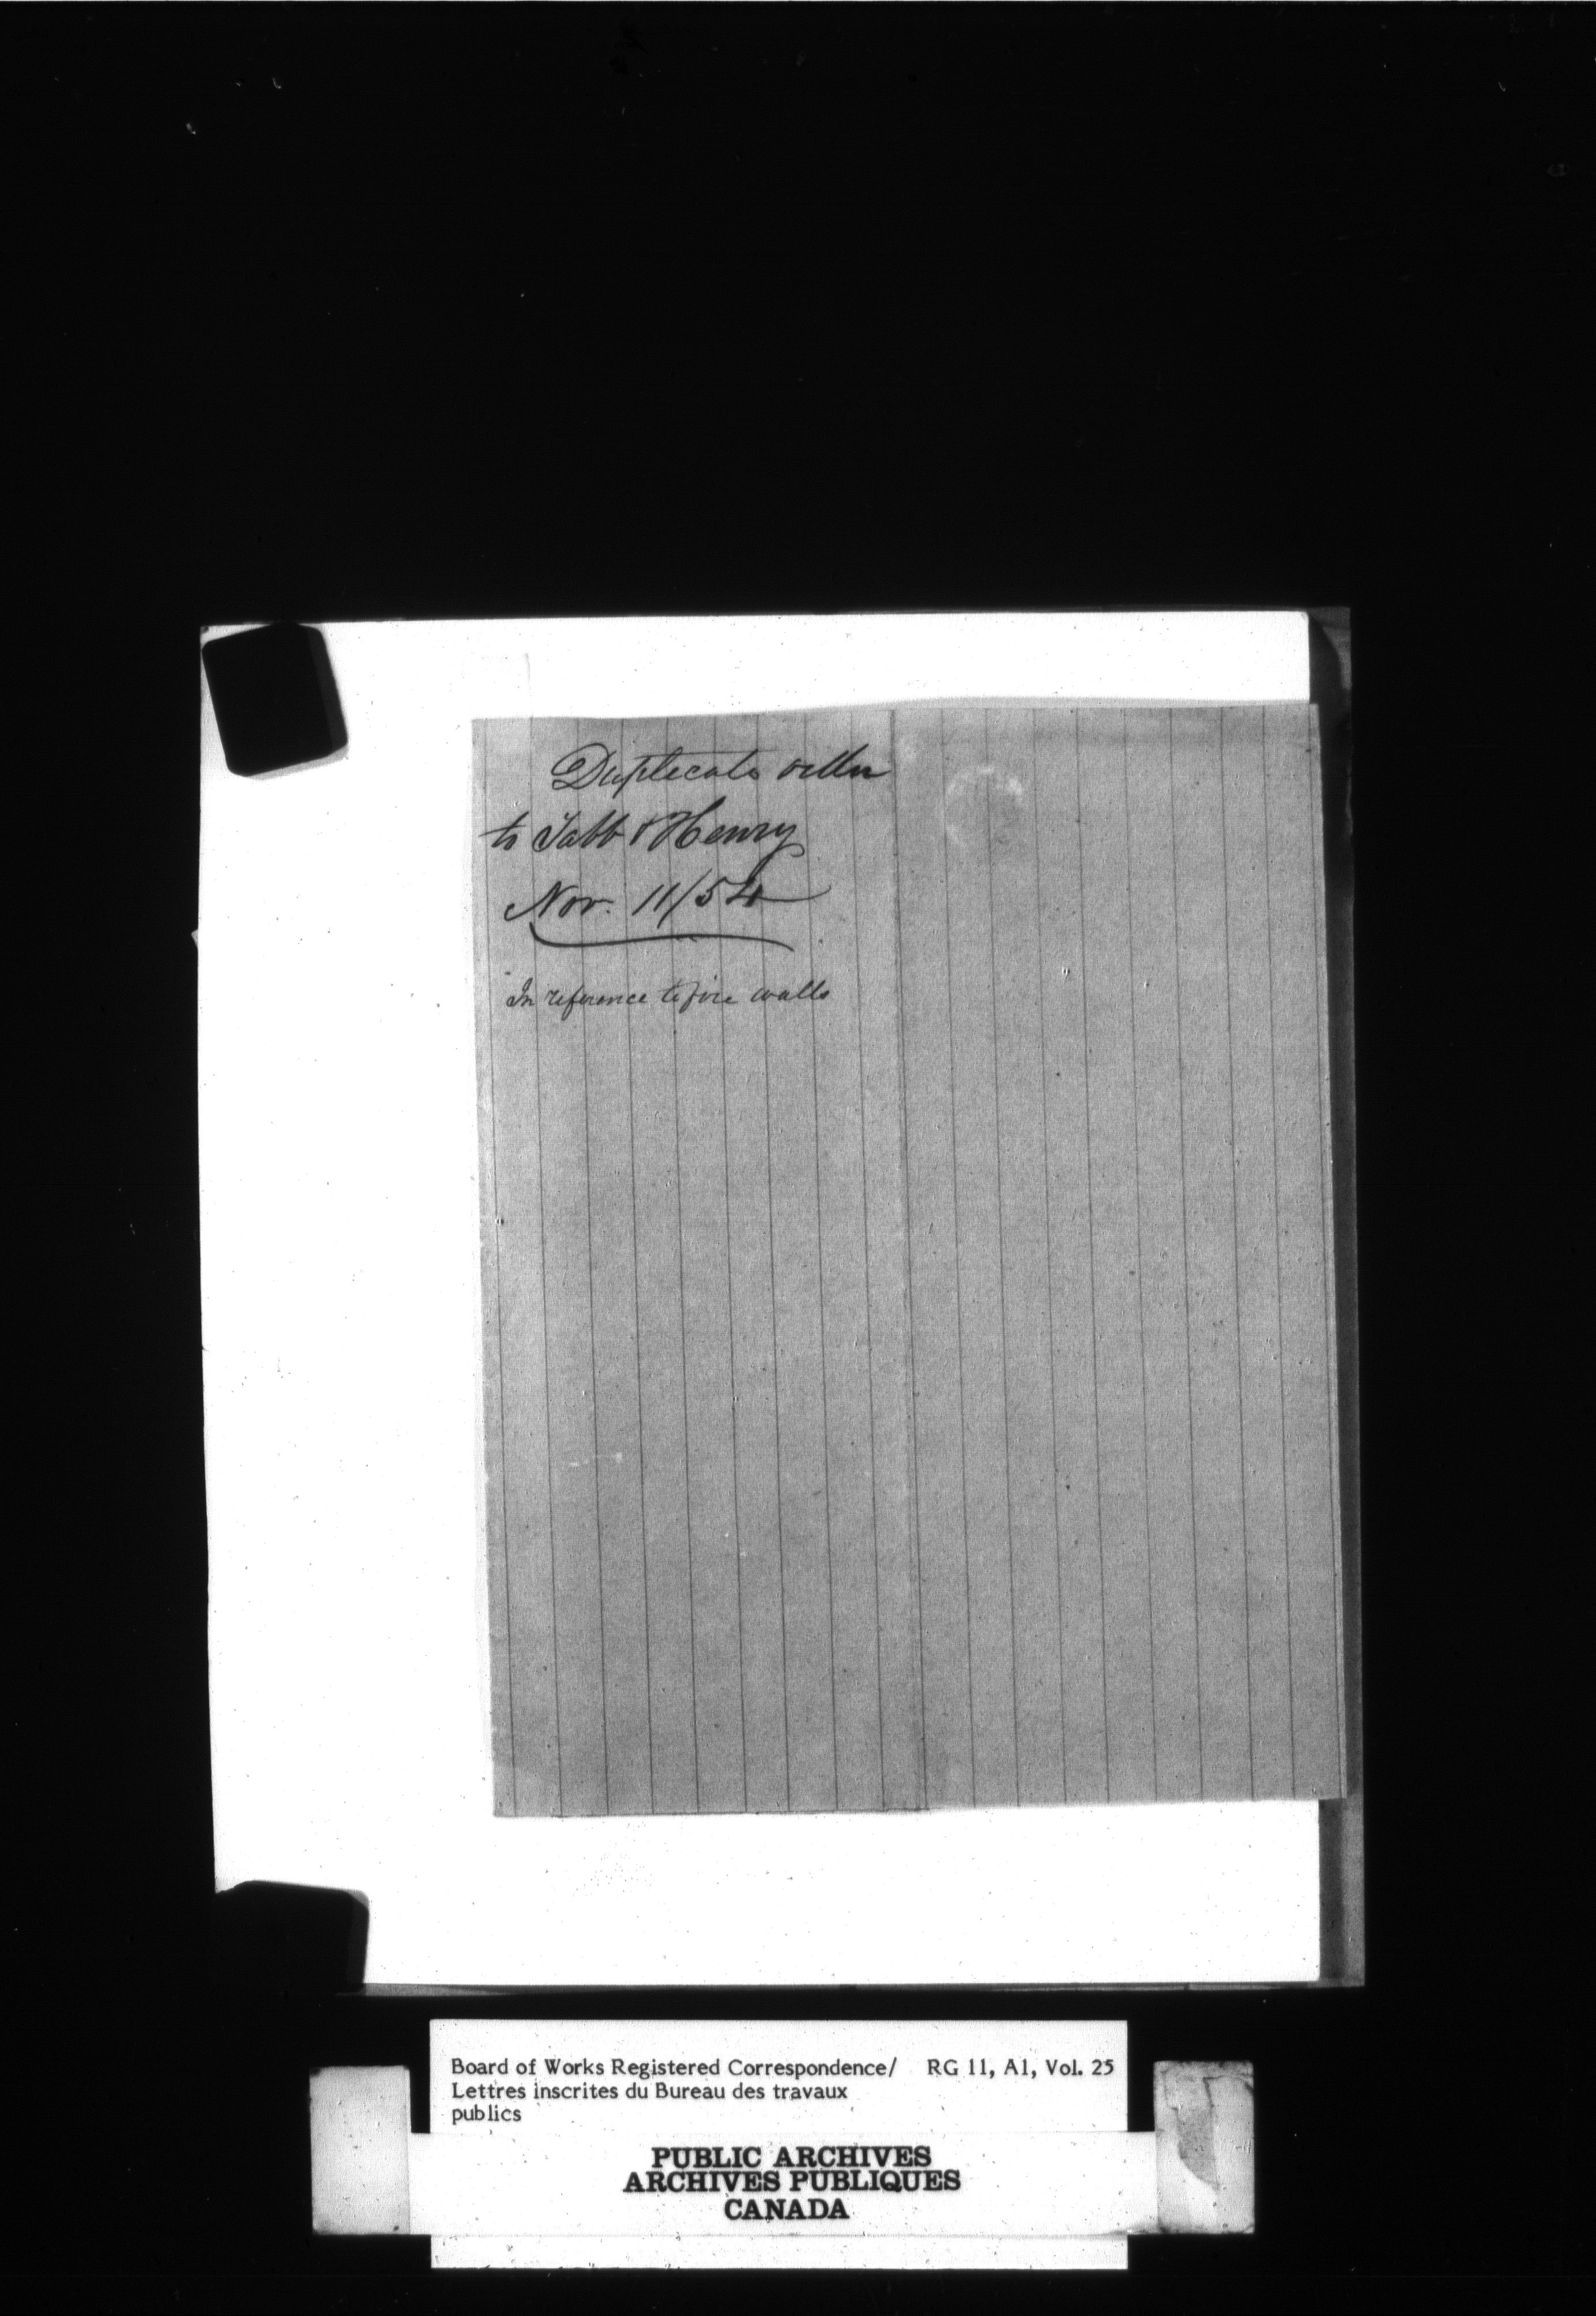 Duplicate order
to Tabb & Henry
Nov. 11/54
In reference to fire walls
Board of Works Registered Correspondence/ RG 11, A1, Vol. 25
Lettres inscrites du Bureau des travaux
publics
PUBLIC ARCHIVES
ARCHIVES PUBLIQUES
CANADA